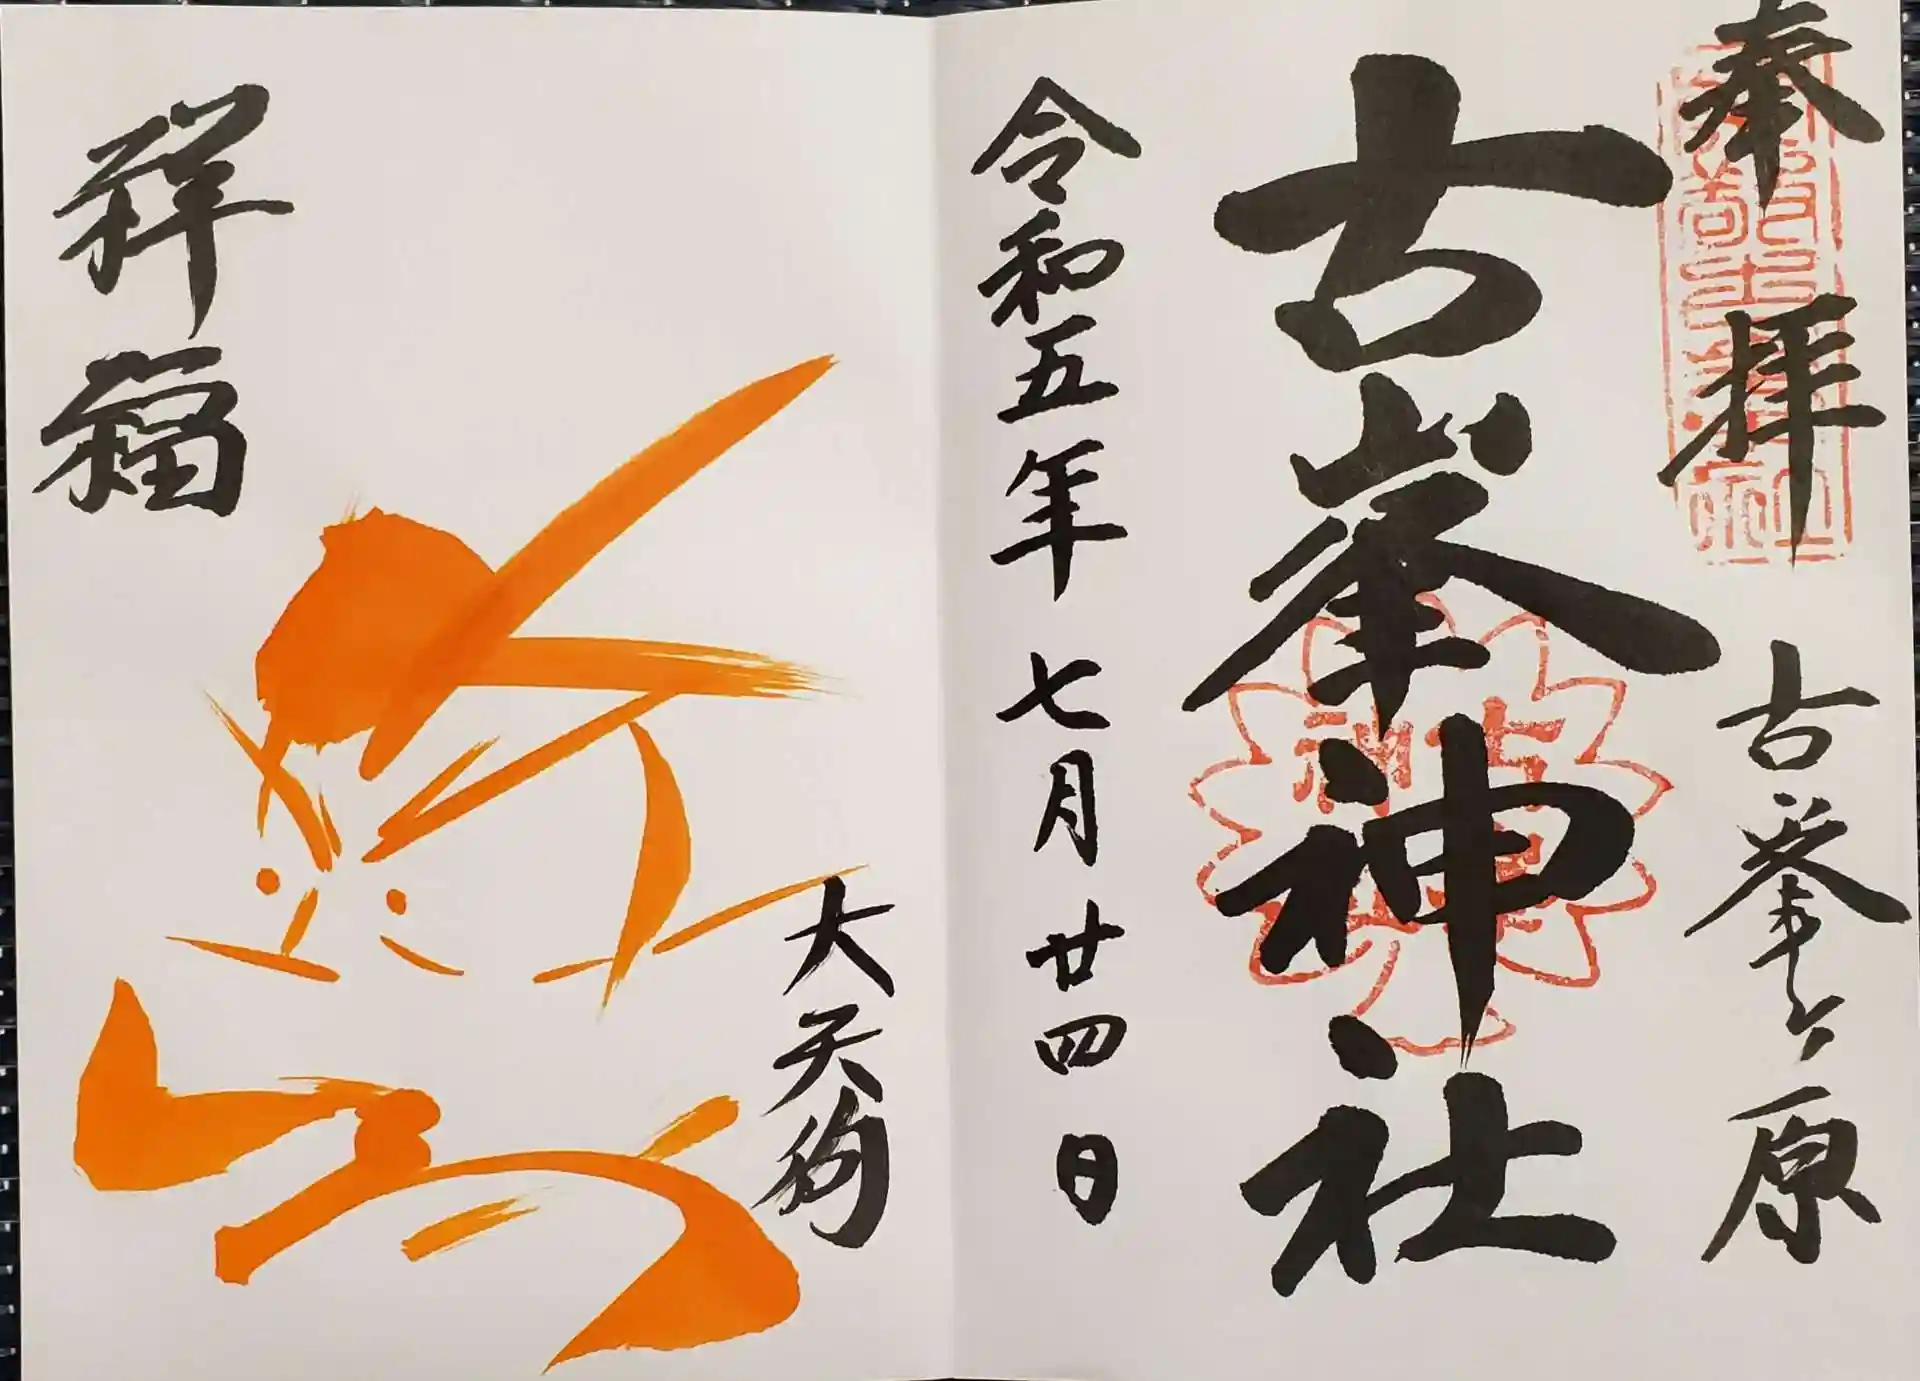 奉拝
古峯ヶ原
古峯神社
令和五年 七月 廿四日
大天狗
祥福